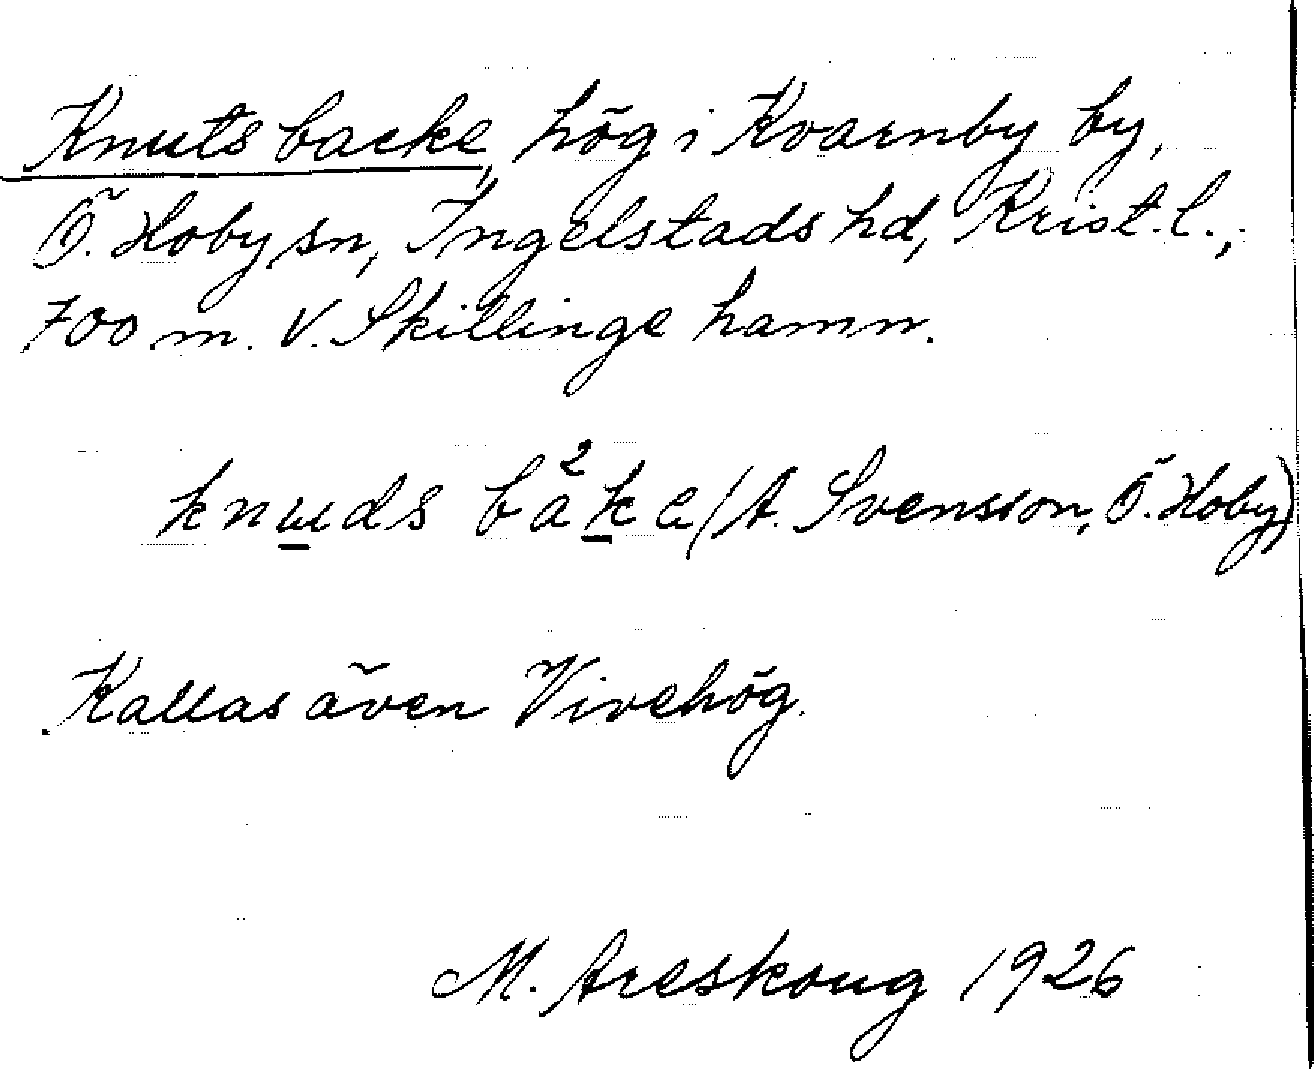 Knuts backe, hög i Kvarnby by,
Ö. Hoby sn, Ingelstads hd, Krist. l.,
700 m. V. Skillinge hamn.
knuds bak²e (A. Svensson, Ö. Hoby)
Kallas även Vivehög.
M. Areskoug 1926